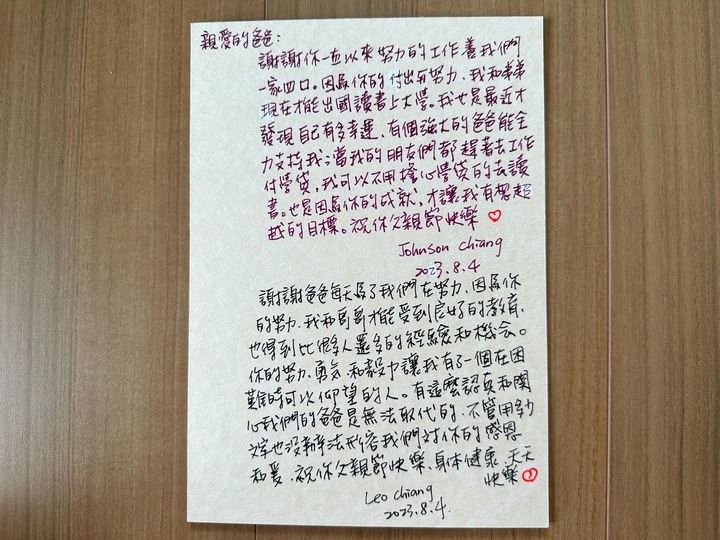 親愛的爸爸：
謝謝你一直以來努力的工作養我們
一家四口。因為你的付出與努力，我和弟弟
現在才能出國讀書上大學。我也是最近才
發現自己有多幸運，有個強大的爸爸能全
力支持我；當我的朋友們都趕著去工作
付學貸，我可以不用擔心學貸的去讀
書。也是因為你的成就，才讓我有想超
越的目標。祝你父親節快樂
Johnson Chiang
2023.8.4
謝謝爸爸每天為了我們在努力，因為你
的努力，我和哥哥才能受到良好的教育，
也得到比很多人還多的經驗和機會。
你的努力、勇氣和毅力讓我有了一個在困
難時可以仰望的人。有這麼認真和關
心我們的爸爸是無法取代的，不管用幼
文字也沒辦法形容我們對你的感恩
和愛，祝你父親節快樂、身體健康、天天
快樂
Leo Chiang
2023.8.4.